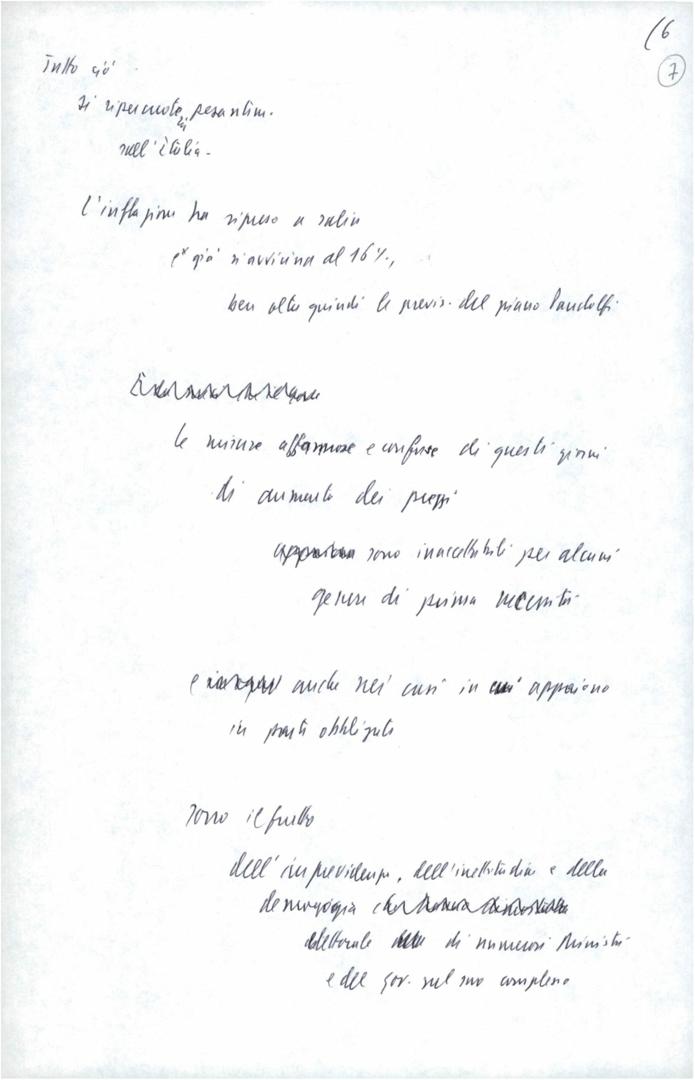 (6
7
Tutto ciò
si ripercuote pesantim.
sull'Italia.
L'inflazione ha ripreso a salire
e già s'avvicina al 16%,
ben oltre quindi le previs. del piano Pandolfi
le misure affannose e confuse di questi giorni
di aumento dei prezzi
sono inaccettabili per alcuni
generi di prima necessità
e anche nei casi in cui appaiono
in parte obbligate
sono il frutto
dell'imprevidenza, dell'inettitudine e della
demagogia
elettorale di numerosi Ministri
e del gov. nel suo complesso